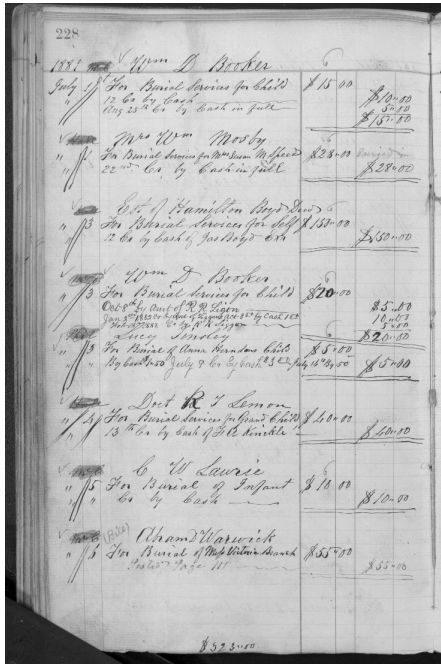 228
1881 Wm D Booker
July 1st For Burial Services for Child $15.00
12 Cr by Cash $10.00
Aug 25th Cr by Cash in full 5.00
$15.00
Mrs Wm Mosby
For Burial Services for Mrs Susan M Speed $28.00
22nd Cr by Cash in full $28.00
Est of Hamilton Boyd Decd
" 3 For Burial Services for Self $150.00
12 Cr by Cash of Jas Boyd Exr $150.00
Wm D Booker
" 3 For Burial Services for Child $20.00
Oct 8th by amt of R R Ligon $5.00
10.00
5.00
$20.00
Lucy Tinsley
" 3 For Burial of Anna Herndons Child $5.00
By Cash 1.50 July 9 Cr by Cash $5.00
Doct R T Lemon
" 4 For Burial Services for Grand Child $40.00
13th Cr by Cash of $40.00
C W Lawrie
" 5 For Burial of Infant $10.00
" " Cr by Cash $10.00
Abram D Warwick
" 6 For Burial of Miss Victoria Branch $55.00
Page $55.00
$323.00